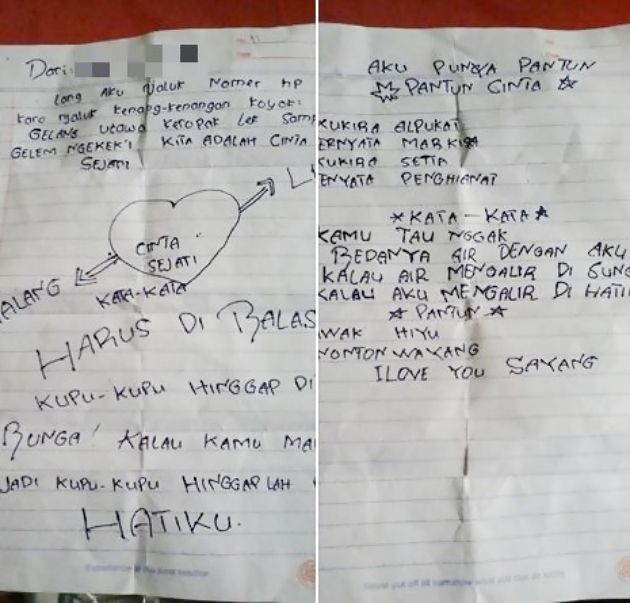 Dari:
long Aku njaluk Nomer HP
karo njaluk kenang-kenangan koyok:
GELANG utowo keropak Lek Samp
GELEM NGEKEK'I KITA ADALAH CINTA
SEJATI
CINTA
SEJATI
MALANG
KATA-KATA
HARUS DI BALAS
KUPU-KUPU HINGGAP DI
BUNGA! KALAU KAMU MA
JADI KUPU-KUPU HINGGAP LAH
HATIKU.
AKU PUNYA PANTUN
PANTUN CINTA
KUKIRA ALPUKAT
ERNYATA MARKISA
KUKIRA SETIA
ENYATA PENGHIANAT
KATA-KATA
KAMU TAU NGGAK
BEDANYA AIR DENGAN AKU
KALAU AIR MENGALIR DI SUNG
KALAU AKU MENGALIR DI HATI
PANTUN
AWAK HIYU
NONTON WAYANG
I LOVE YOU SAYANG